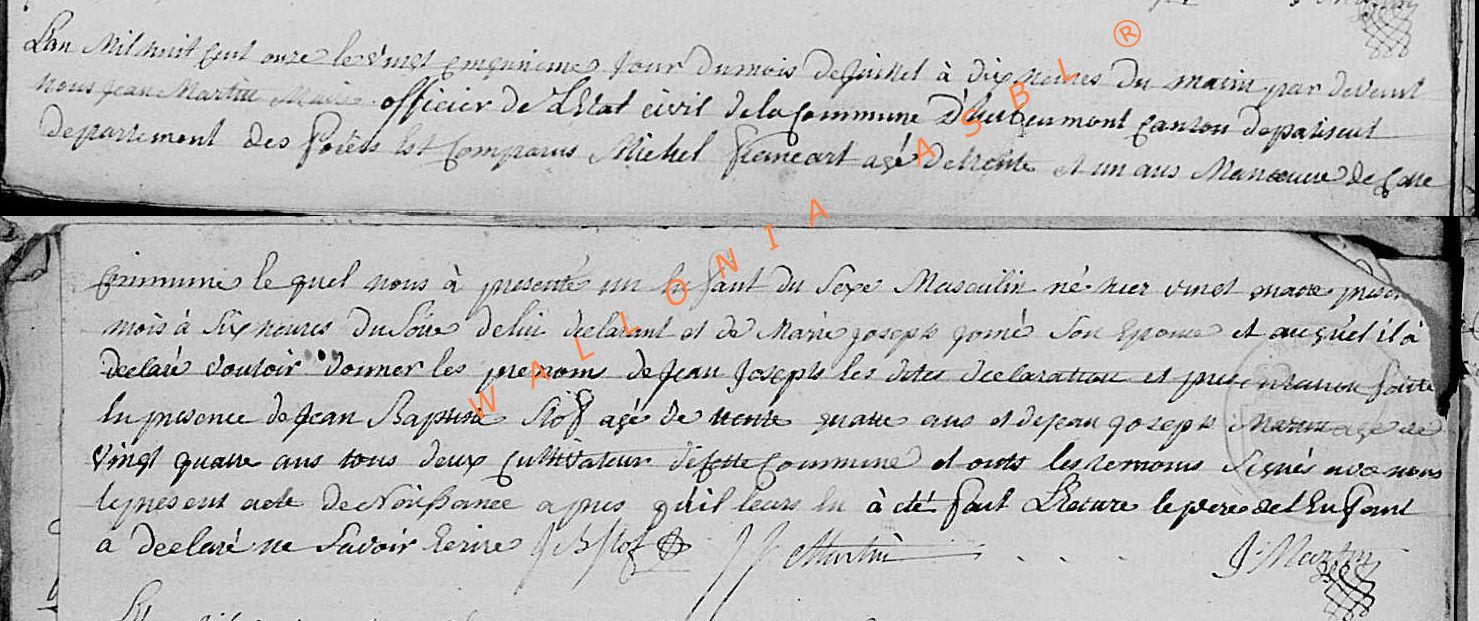 L'an Mil huit Cent onze le vingt cinquieme Jour du mois de Juillet à dix heures du matin par devant
nous Jean Martin Maire officier de L'Etat civil de la Commune D'herbeumont Canton de paliseul
departement des forêts Est Comparus Michel francart agé de trente et un ans Manœuvre de Cette
Commune le quel nous à presenté un Enfant du Sexe Masculin né hier vingt quatre present
mois à Six heures du Soir de lui declarant et de Marie Joseph Jomé Son Epouse et auquel il à
declaré vouloir donner les prenoms de Jean Joseph les dites declaration et presentation faite
En presence de Jean Baptiste Slof agé de trente quatre ans et de Jean Joseph Martin agé de
vingt quatre ans tous deux Cultivateur de Cette Commune et onts les temoins Signés avec nous
le present acte de Naissance apres qu'il leurs lu à été fait Lecture le pere de L'Enfant
a declaré ne Savoir Ecrire J B Slof J J Martin J Martin
WALLONIA ASBL ®